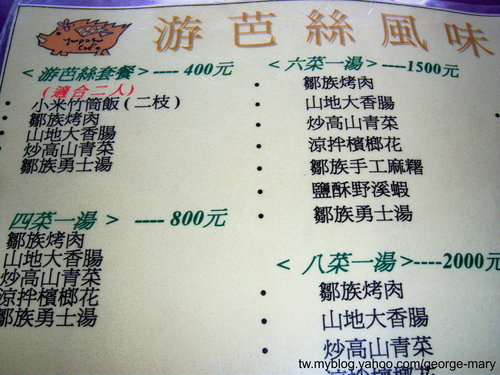 游芭絲風味
< 游芭絲套餐 > ---- 400元
(適合二人)
小米竹筒飯(二枝)
鄒族烤肉
山地大香腸
炒高山青菜
鄒族勇士湯
四菜一湯 > ---- 800元
鄒族烤肉
山地大香腸
炒高山青菜
涼拌檳榔花
鄒族勇士湯
< 六菜一湯 >----1500元
鄒族烤肉
山地大香腸
炒高山青菜
涼拌檳榔花
鄒族手工麻糬
鹽酥野溪蝦
鄒族勇士湯
< 八菜一湯 >----2000元
鄒族烤肉
山地大香腸
炒高山青菜
涼拌檳榔花
tw.myblog.yahoo.com/george-mary